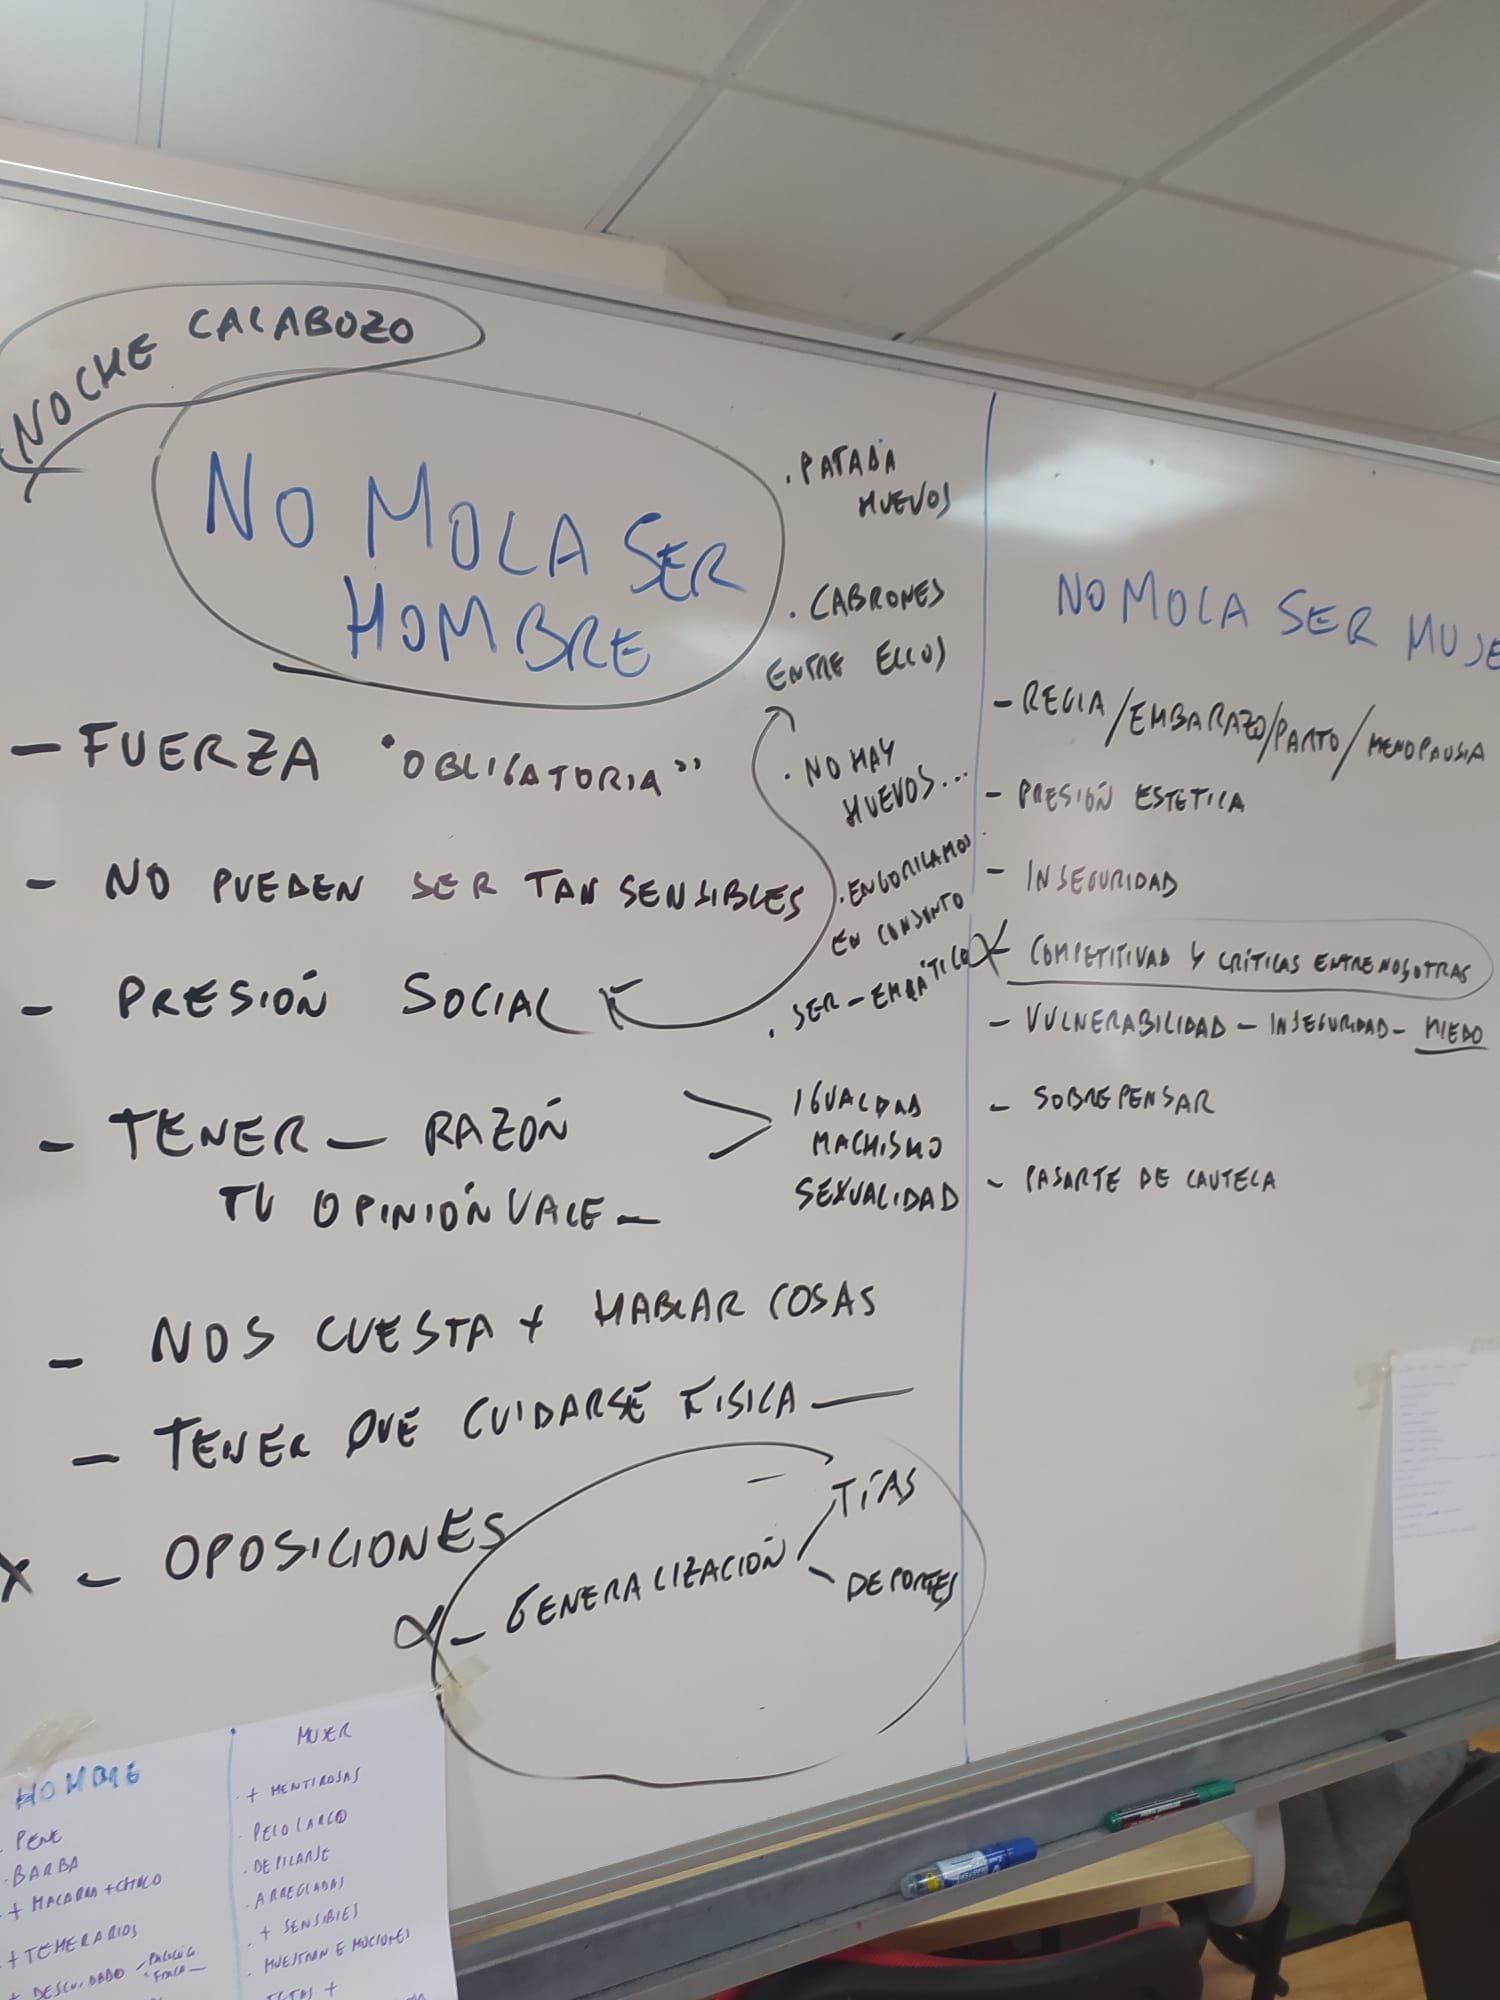 NOCHE CALABOZO
NO MOLA SER
HOMBRE
- FUERZA "OBLIGATORIA"
- NO PUEDEN SER TAN SENSIBLES
- PRESIÓN SOCIAL
- TENER - RAZÓN
TU OPINIÓN VALE -
- NOS CUESTA + HABLAR COSAS
- TENER QUE CUIDARSE FISICA —
X - OPOSICIONES
- GENERALIZACIÓN
TÍAS
DEPORTES
. PATADA
HUEVOS
. CABRONES
ENTRE ELLOS
. NO HAY
HUEVOS...
. ENGORILAMOS
EN CONJUNTO
. SER - EMPÁTICO
IGUALDAD
MACHISMO
SEXUALIDAD
NO MOLA SER MUJE
- REGLA/EMBARAZO/PARTO/MENOPAUSIA
- PRESIÓN ESTETICA
- INSEGURIDAD
- COMPETITIVAD Y CRÍTICAS ENTRE NOSOTRAS
- VULNERABILIDAD - INSEGURIDAD - MIEDO
- SOBREPENSAR
- PASARTE DE CAUTELA
HOMBRE
. PENE
. BARBA
+ MACARRA + CHULO
+ TEMERARIOS
+ DESCUIDADO
MUJER
. + MENTIROSAS
. PELO LARGO
. DEPILARSE
. ARREGLADAS
. + SENSIBLES
. MUESTRAN EMOCIONES